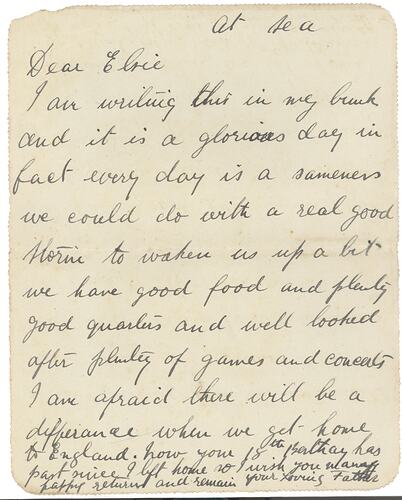 At sea
Dear Elsie
I am writing this in my bunk
and it is a glorious day in
fact every day is a sameness
we could do with a real good
storm to waken us up a bit
we have good food and plenty
good quarters and well looked
after plenty of games and concerts
I am afraid there will be a
differance when we get home
to England. now your 18th Berthay has
past since I left home so I wish you many
happy returns and remain your loving Father